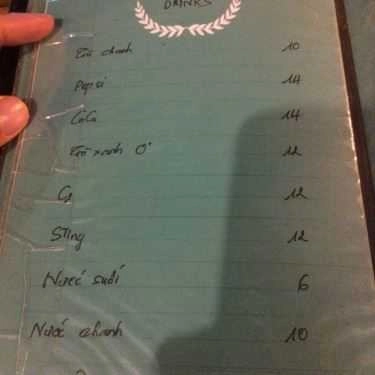 DRINKS
Trà chanh 10
Pepsi 14
CoCa 14
Trà xanh O° 12
C2 12
Sting 12
Nước suối 6
Nước chanh 10